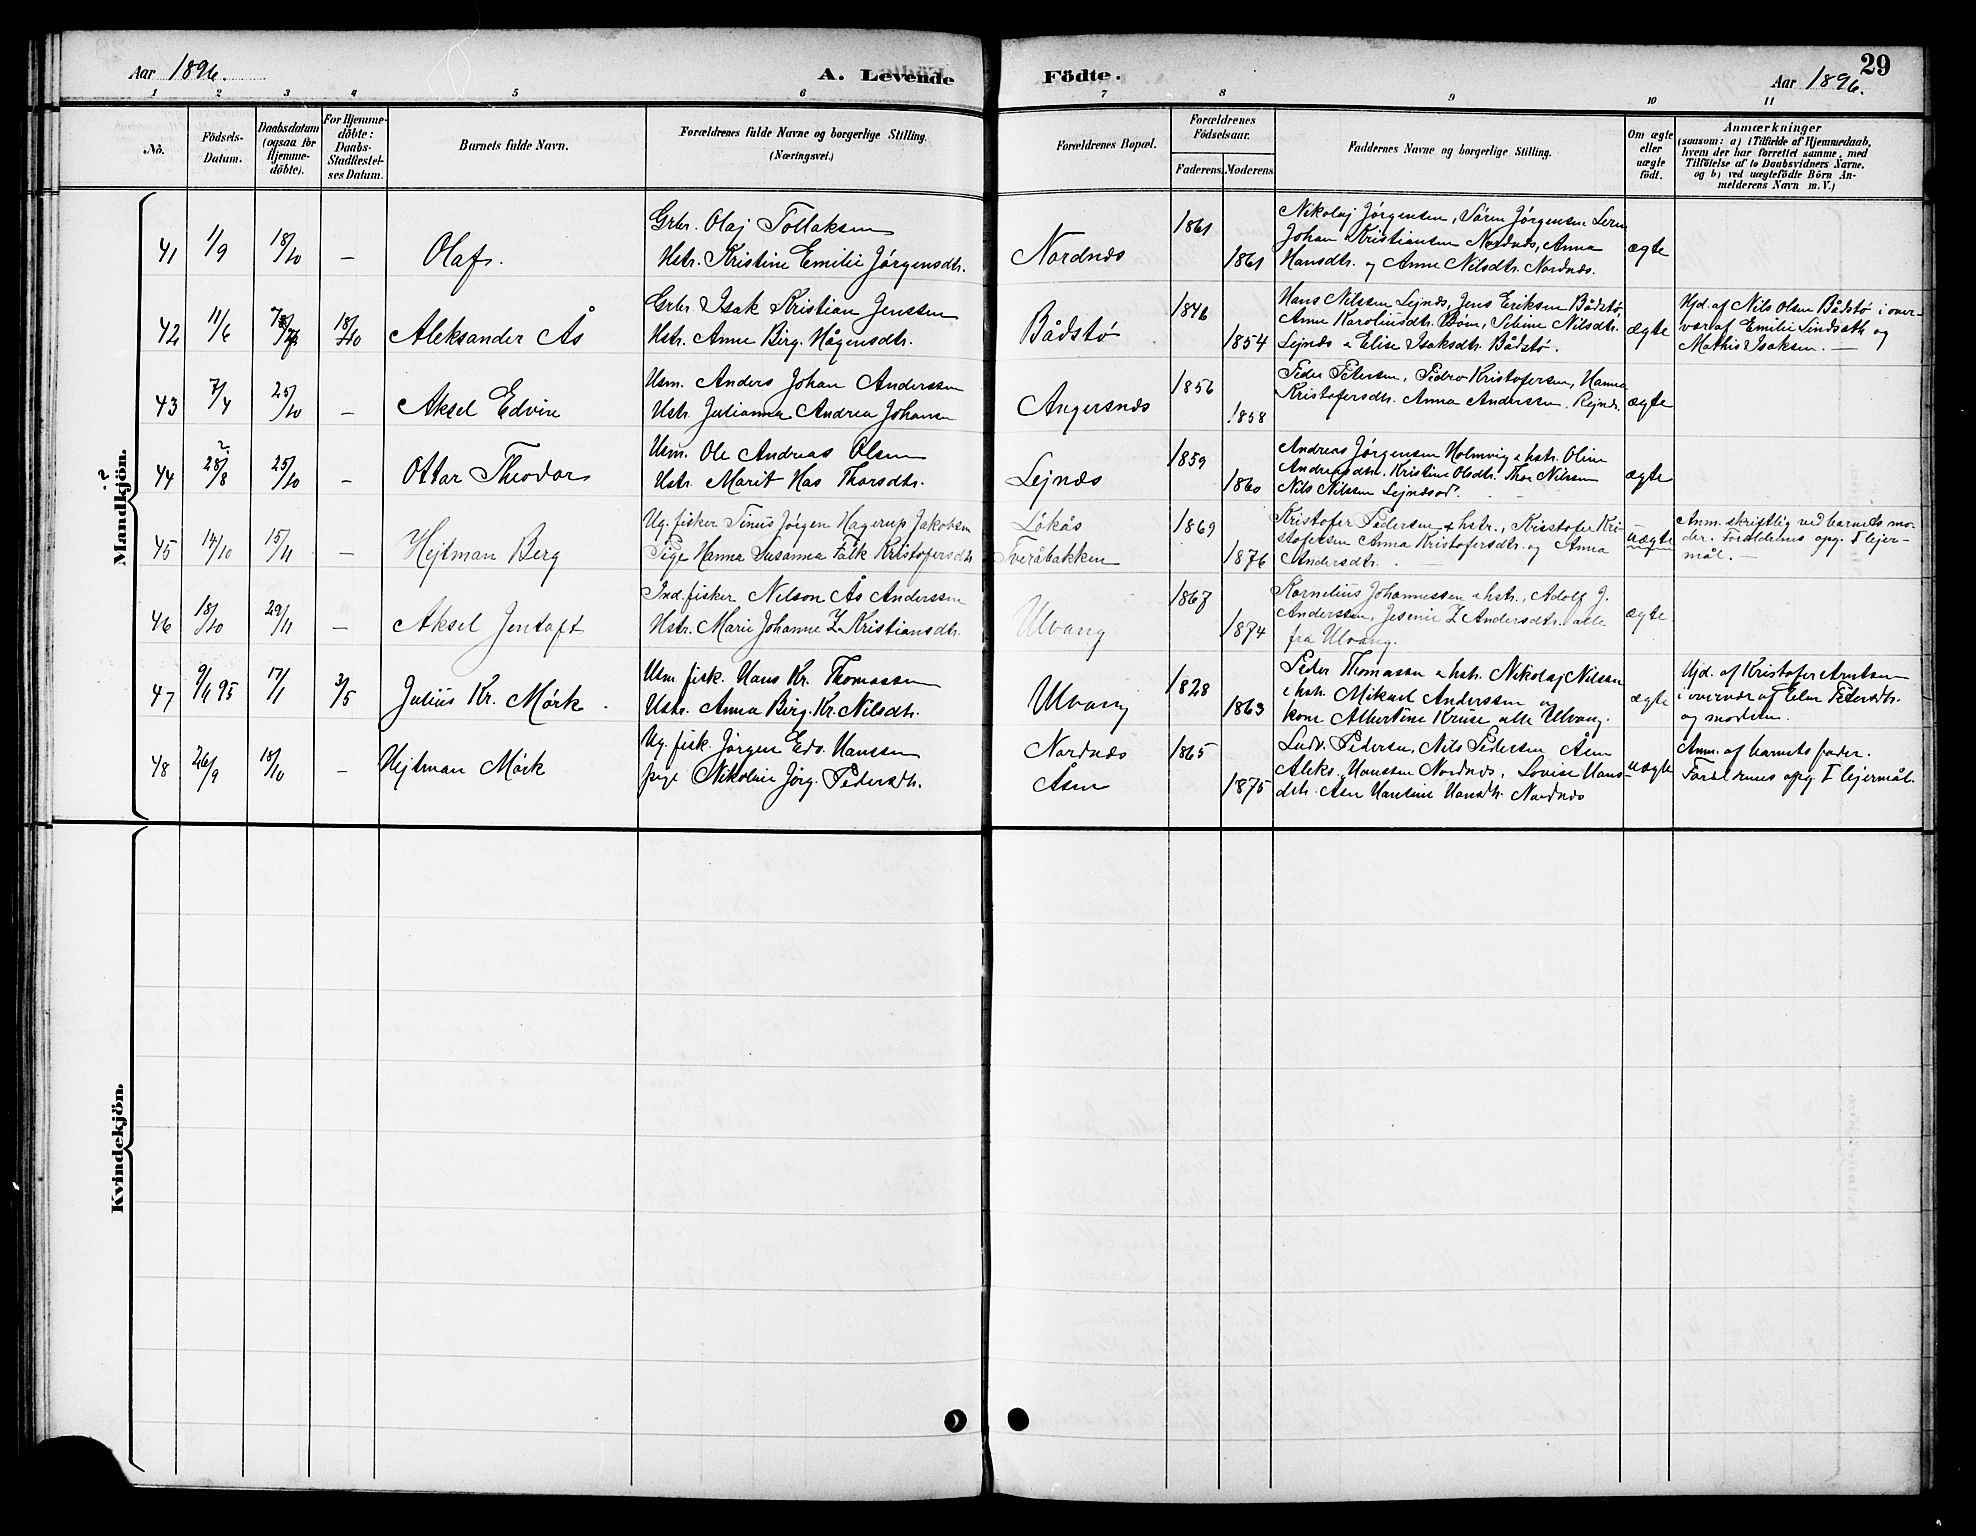 Aar 1896.
A. Levende
Födte.
Aar 1896.
29
1 2 3 4 5 6 7 8 9 10 11
No.
Födsels-
Datum.
Daabsdatum
(ogsaa for
Hjemme-
döbte).
For Hjemme-
döbte:
Daabs-
Stadfæstel-
ses Datum.
Barnets fulde Navn.
Forældrenes fulde Navne og borgerlige Stilling.
(Næringsvei.)
Forældrenes Bopæl.
Forældrenes
Födselsaar.
Faderens. Moderens.
Faddernes Navne og borgerlige Stilling.
Om ægte
eller
uægte
født.
Anmærkninger
(saasom: a) i Tilfælde af Hjemmedaab,
hvem der har forrettet samme, med
Tilföielse af to Daabsvidners Navne,
og b) ved uægtefödte Börn An-
melderens Navn m. V.)
Mandkjön.
41 11/9 18/10 — Olaf.
Grbr. Olaj Tollaksen
Hstr. Kristine Emilie Jørgensdtr.
Nordnæs 1861 1861
Nikolaj Jørgensen, Søren Jørgensen
Johan Kristiansen Nordnæs, Anna
Hansdtr. og Anne Nilsdtr. Nordnæs.
ægte
42 11/6 18/10 Aleksander Ås
Grbr Isak Kristian Jenssen
Hstr. Anne Berg. Hågensdtr.
Bådstø 1846 1854
Hans Nilssen Lejnæs, Jens Eriksen Bådstø,
Anne Karoliusdtr. Bøen, Seline Nilsdtr.
Lejnæs & Elise Isaksdtr. Bådstø.
ægte
Hjd. af Nils Olsen Bådstø i over-
vær af Emilie Lindseth og
Mathis Isaksen. —
43 7/4 25/10 — Aksel Edvin
Usm. Anders Johan Anderssen
Hstr. Julianna Andrea Johansen
Angersnæs 1856 1858
Peder Petersen, Pedro Kristofersen, Hanna
Kristofersdtr. Anna Anderssen, Rejnæs.
ægte
44 28/8 ? 25/10 — Ottar Theodor
Usm. Ole Andreas Olsen
Hstr. Marit Has Thorsdtr.
Lejnæs 1859 1860
Andreas Jørgensen Holmvig & hstr. Oline
Andreasdtr. Kristine Olsdtr. Thor Nilssen
Nils Nilssen Lejnæsod.
ægte
45 14/10 15/11 — Hejtman Berg
Ug. fisker Tinus Jørgen Hagerup Jakobsen
Pige Hanna Susanna Falk Kristofersdtr
Løkås
Tveråbakken 1869 1876
Kristofer Pedersen & hstr., Kristofer Kri-
stofersen Anna Kristofersdtr. og Anna
Andersdtr.
uægte
Anm. skriftlig ved barnets mo-
der. Forældrenes opg. I lejer-
mål. —
46 18/10 29/11 — Aksel Jentoft
Ind. fisker Nelson Ås Anderssen
Hstr. Marie Johanne Z. Kristiansdtr.
Ulvang 1867 1874
Kornelius Johannessen & hstr., Adolf J.
Anderssen, Jesenie Z Andersdtr. alle
fra Ulvang.
ægte
47 9/4 95 17/1 3/5 Julius Kr. Mörk
Usm fisk. Hans Kr. Thomassen
Hstr. Anna Berg. Kr. Nilsdtr.
Ulvang 1828 1863
Peder Thomassen & hstr. Nikolaj Nilssen
& hstr. Mikael Anderssen og
kone Albertine Kruse alle Ulvang.
ægte
Hjd. af Kristofer Arntsen
i overvær af Elen Pedersdtr.
og moderen.
48 26/9 18/10 — Hejtman Mörk
Ug. fisk. Jørgen Edv. Hanssen
pige Nikoline Jörg. Pedersdtr.
Nordnæs
Åsen 1865 1875
Ludv. Pedersen, Nils Pedersen Åsen
Aleks. Hanssen Nordnæs, Lovise Hans-
dtr. Åsen Hansine Hansdtr. Nordnæs
uægte
Anm. af barnets fader.
Forældrenes opg. I lejermål.
Kvindekjön.